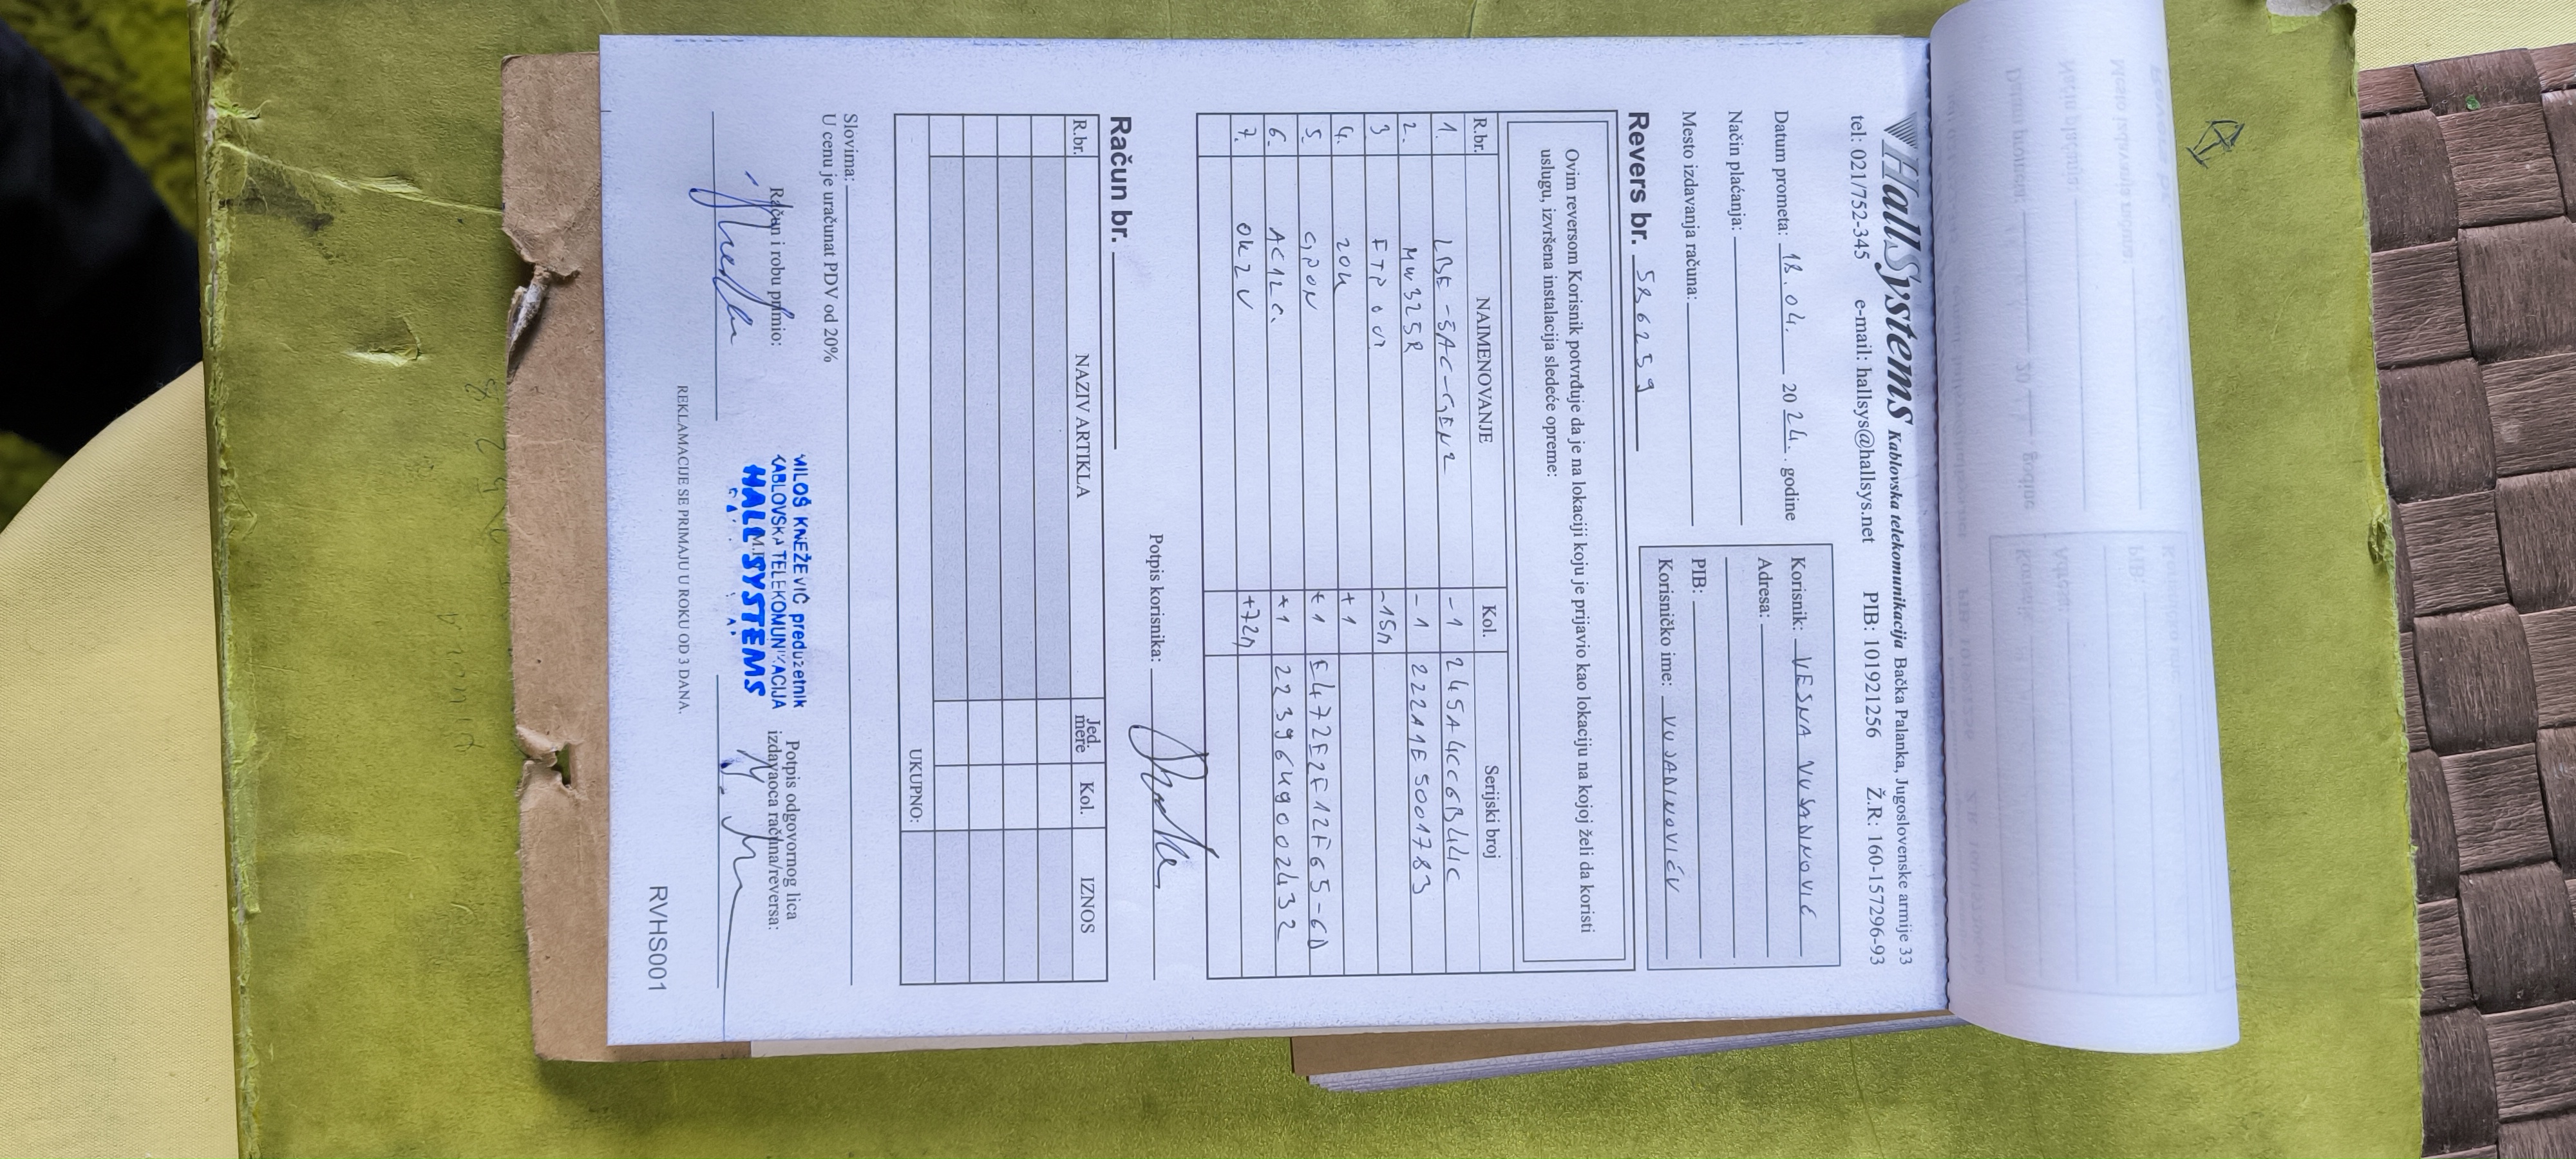 HallSystems Kablovska telekomunikacija Bačka Palanka, Jugoslovenske armije 33
tel: 021/752-345 e-mail: hallsys@hallsys.net PIB: 101921256 Ž.R: 160-157296-93
Datum prometa: 18.04. 2024. godine
Način plaćanja:
Mesto izdavanja računa:
Korisnik: VESNA VUJADINOVIĆ
Adresa:
PIB:
Korisničko ime: VUJADINOVIĆV
Revers br. SR6259
Ovim reversom Korisnik potvrđuje da je na lokaciji koju je prijavio kao lokaciju na kojoj želi da koristi
uslugu, izvršena instalacija sledeće opreme:
R.br. NAIMENOVANJE Kol. Serijski broj
1. LBE-5AC-GEN2 -1 245A4CC6B44C
2. MW325R -1 2221E5001783
3 FTP OUT -15m
4. ZOK +1
5. GPON +1 E472E2F12F65-6D
6. AC12G. +1 2239649002432
7. OK2V +72m
Potpis korisnika:
Račun br.
R.br. NAZIV ARTIKLA Jed. mere Kol. IZNOS
UKUPNO:
Slovima:
U cenu je uračunat PDV od 20%
Račun i robu primio:
MILOŠ KNEŽEVIĆ preduzetnik
KABLOVSKA TELEKOMUNIKACIJA
HALL SYSTEMS
Potpis odgovornog lica
izdavaoca računa/reversa:
REKLAMACIJE SE PRIMAJU U ROKU OD 3 DANA.
RVHS001